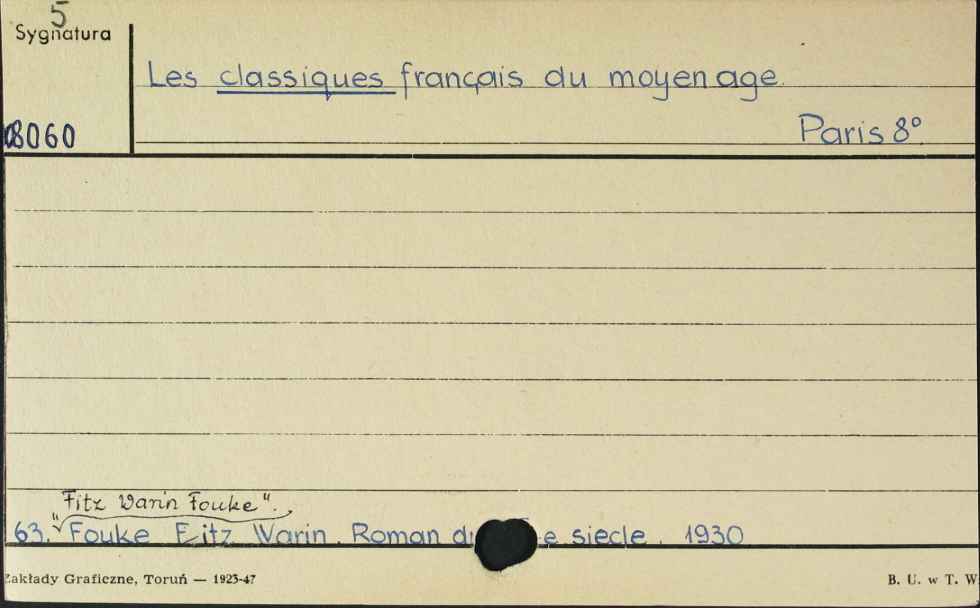 5
Sygnatura
Les classiques français du moyen age.
8060
Paris 8°
"Fitz Warin Fouke".
63. Fouke Fitz Warin. Roman siecle. 1930
Zakłady Graficzne, Toruń — 1923-47
B. U. w T. W